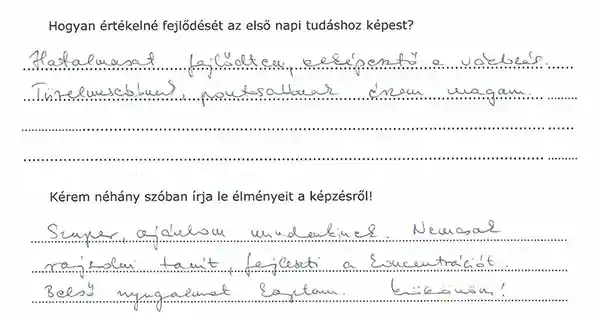 Hogyan értékelné fejlődését az első napi tudáshoz képest?
Hatalmasat fejlődtem, elképesztő a változás.
Türelmesebbnek, pontosabbnak érzem magam.
Kérem néhány szóban írja le élményeit a képzésről!
Szuper, ajánlom mindenkinek. Nemcsak
rajzolni tanít, fejleszti a koncentrációt.
Belső nyugalmat kaptam. Köszönöm!